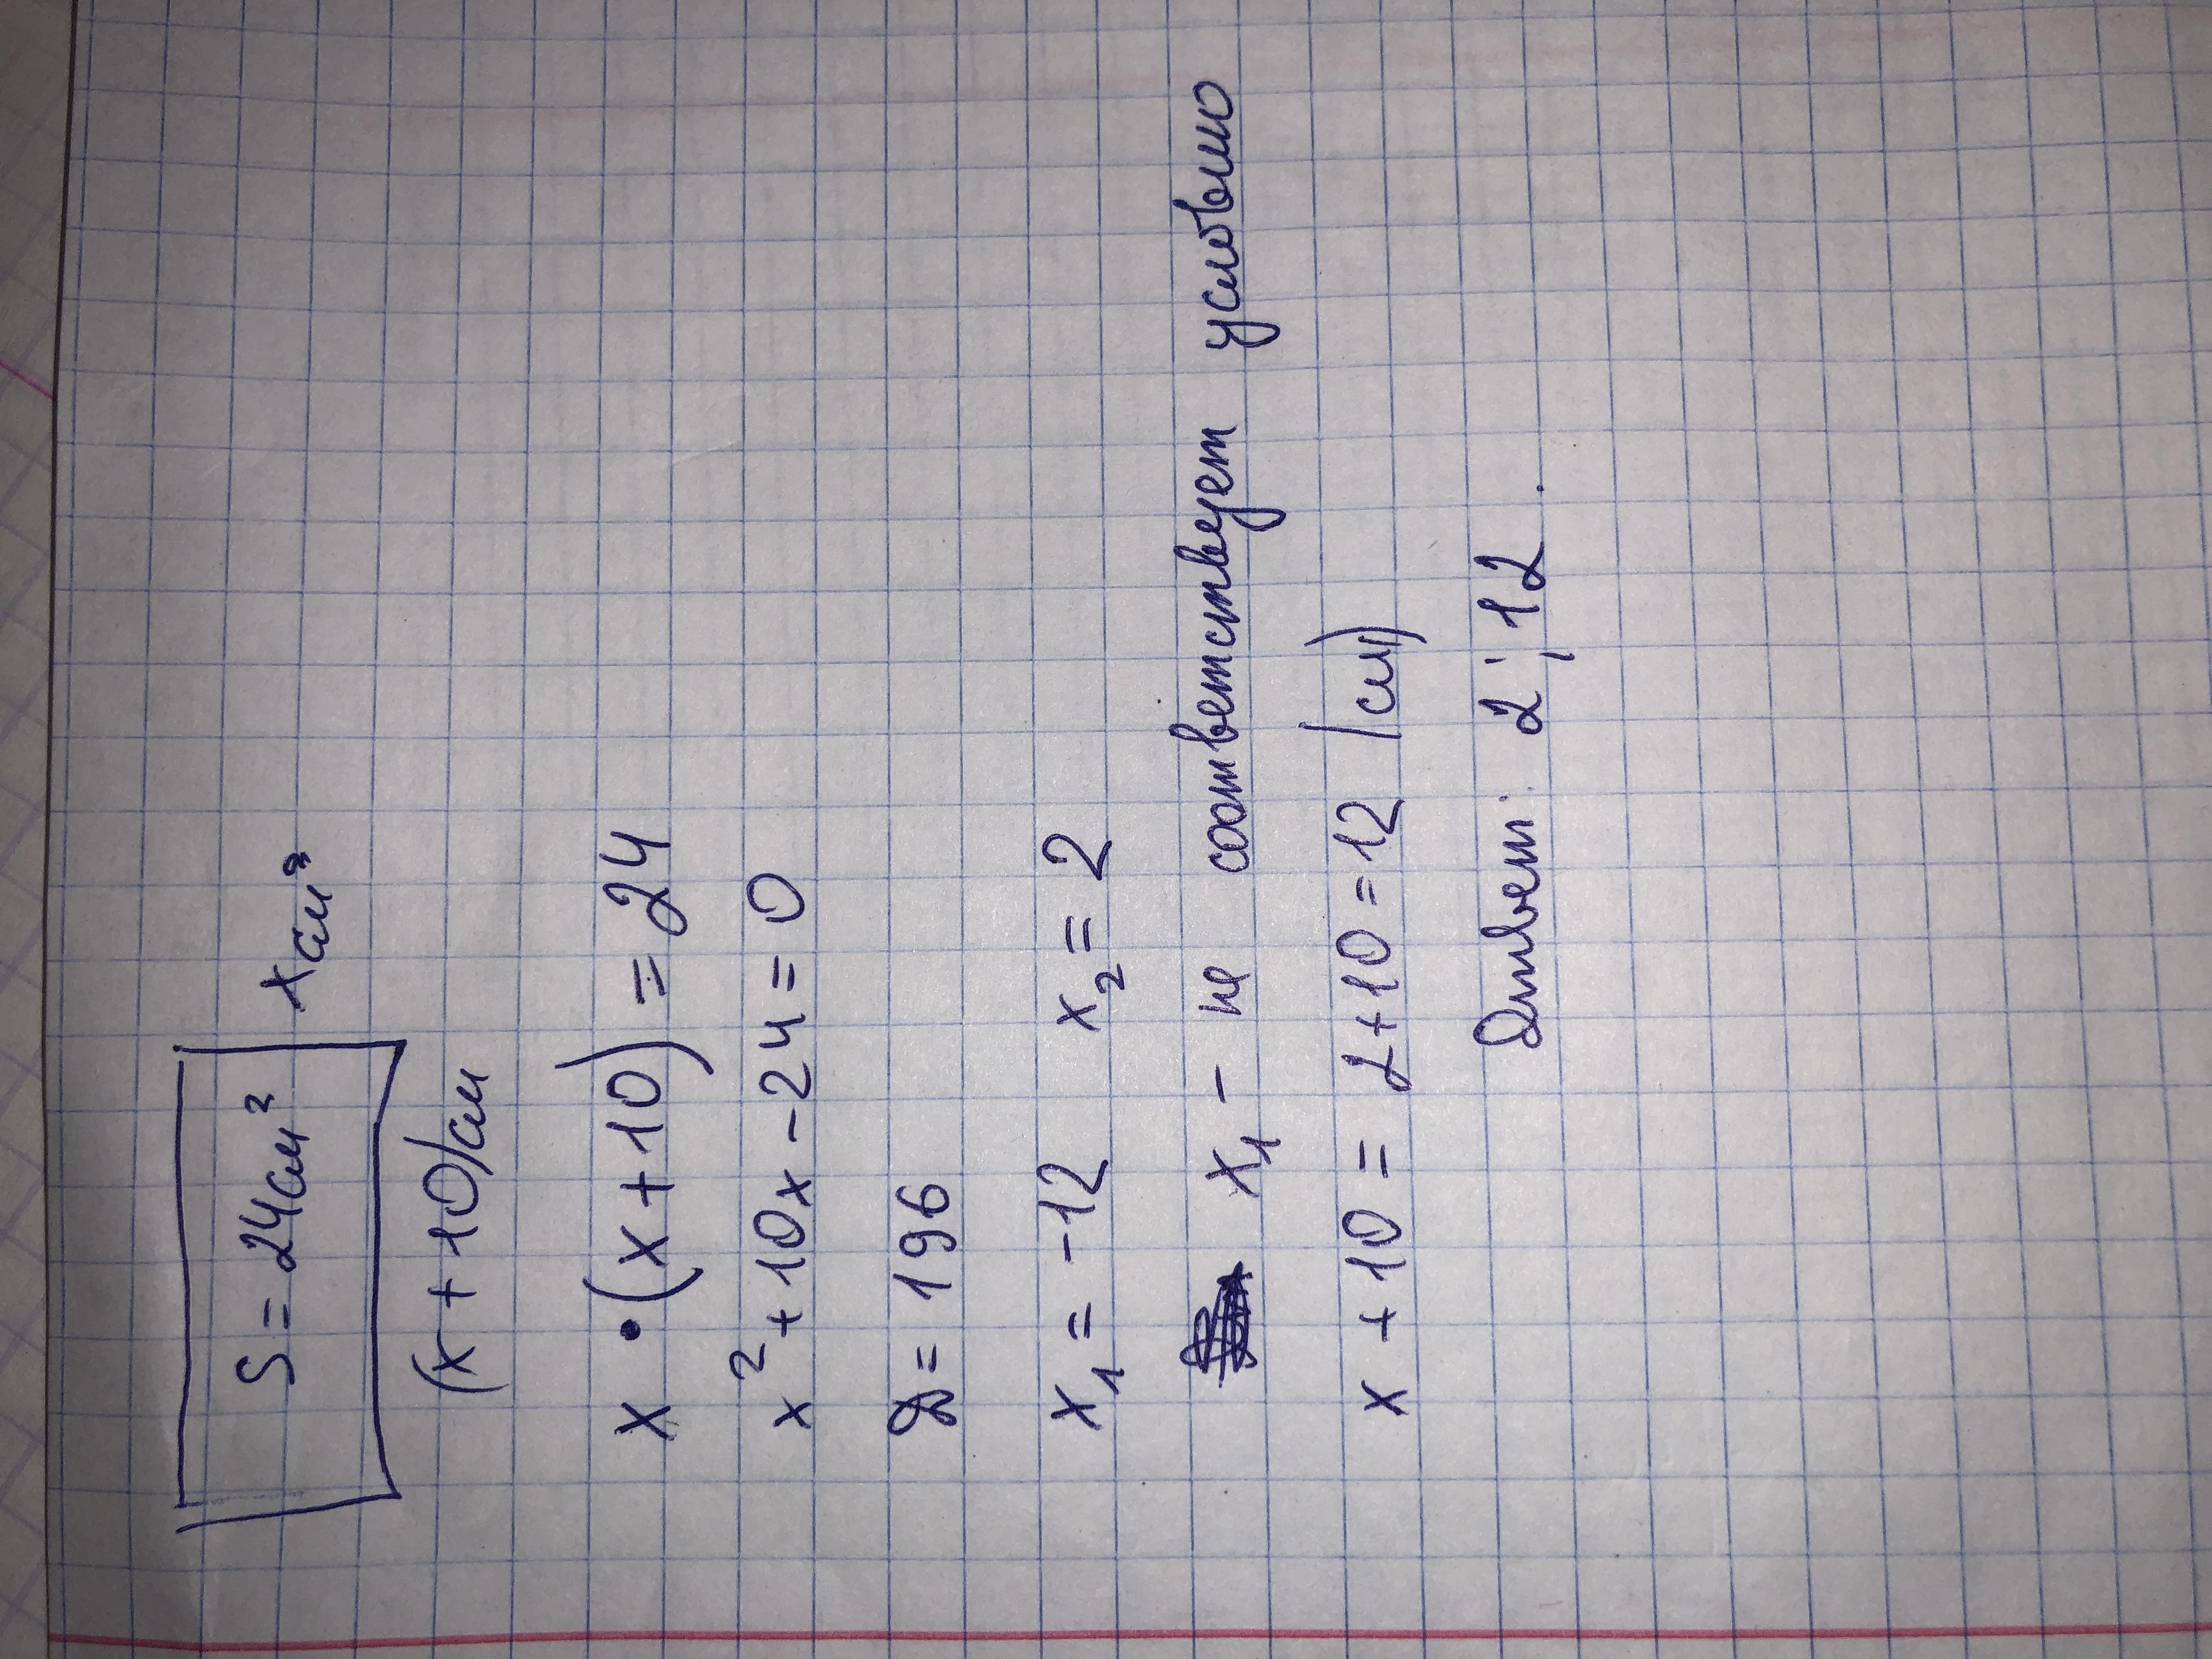 S = 24см²
x см²
(x + 10)см
x • (x + 10) = 24
x² + 10x - 24 = 0
D = 196
x₁ = -12 x₂ = 2
x₁ - не соответствует условию
x + 10 = 2 + 10 = 12 (см)
Ответ: 2; 12.